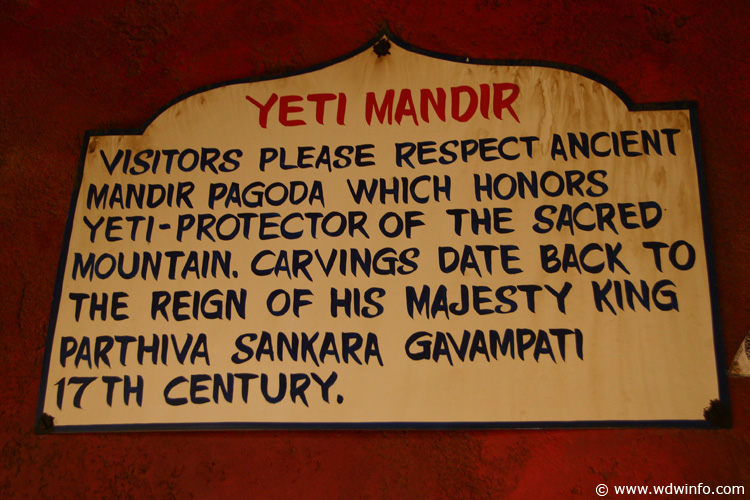 YETI MANDIR
VISITORS PLEASE RESPECT ANCIENT
MANDIR PAGODA WHICH HONORS
YETI-PROTECTOR OF THE SACRED
MOUNTAIN. CARVINGS DATE BACK TO
THE REIGN OF HIS MAJESTY KING
PARTHIVA SANKARA GAVAMPATI
17TH CENTURY.
© www.wdwinfo.com